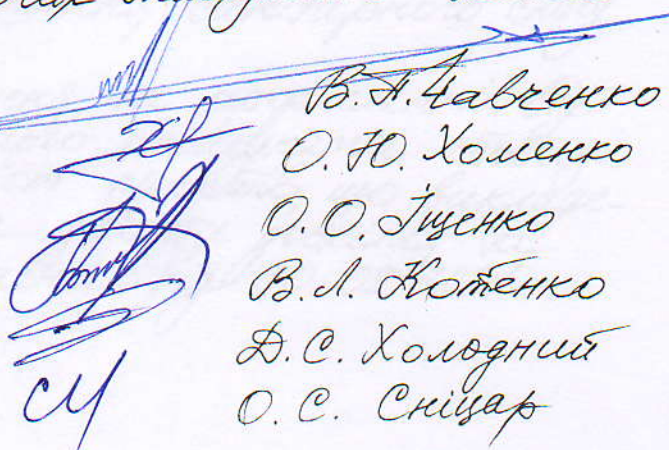 В. А. Чавченко
О. Ю. Хоменко
О. О. Іщенко
В. Л. Котенко
Д. С. Холодний
О. С. Сніцар